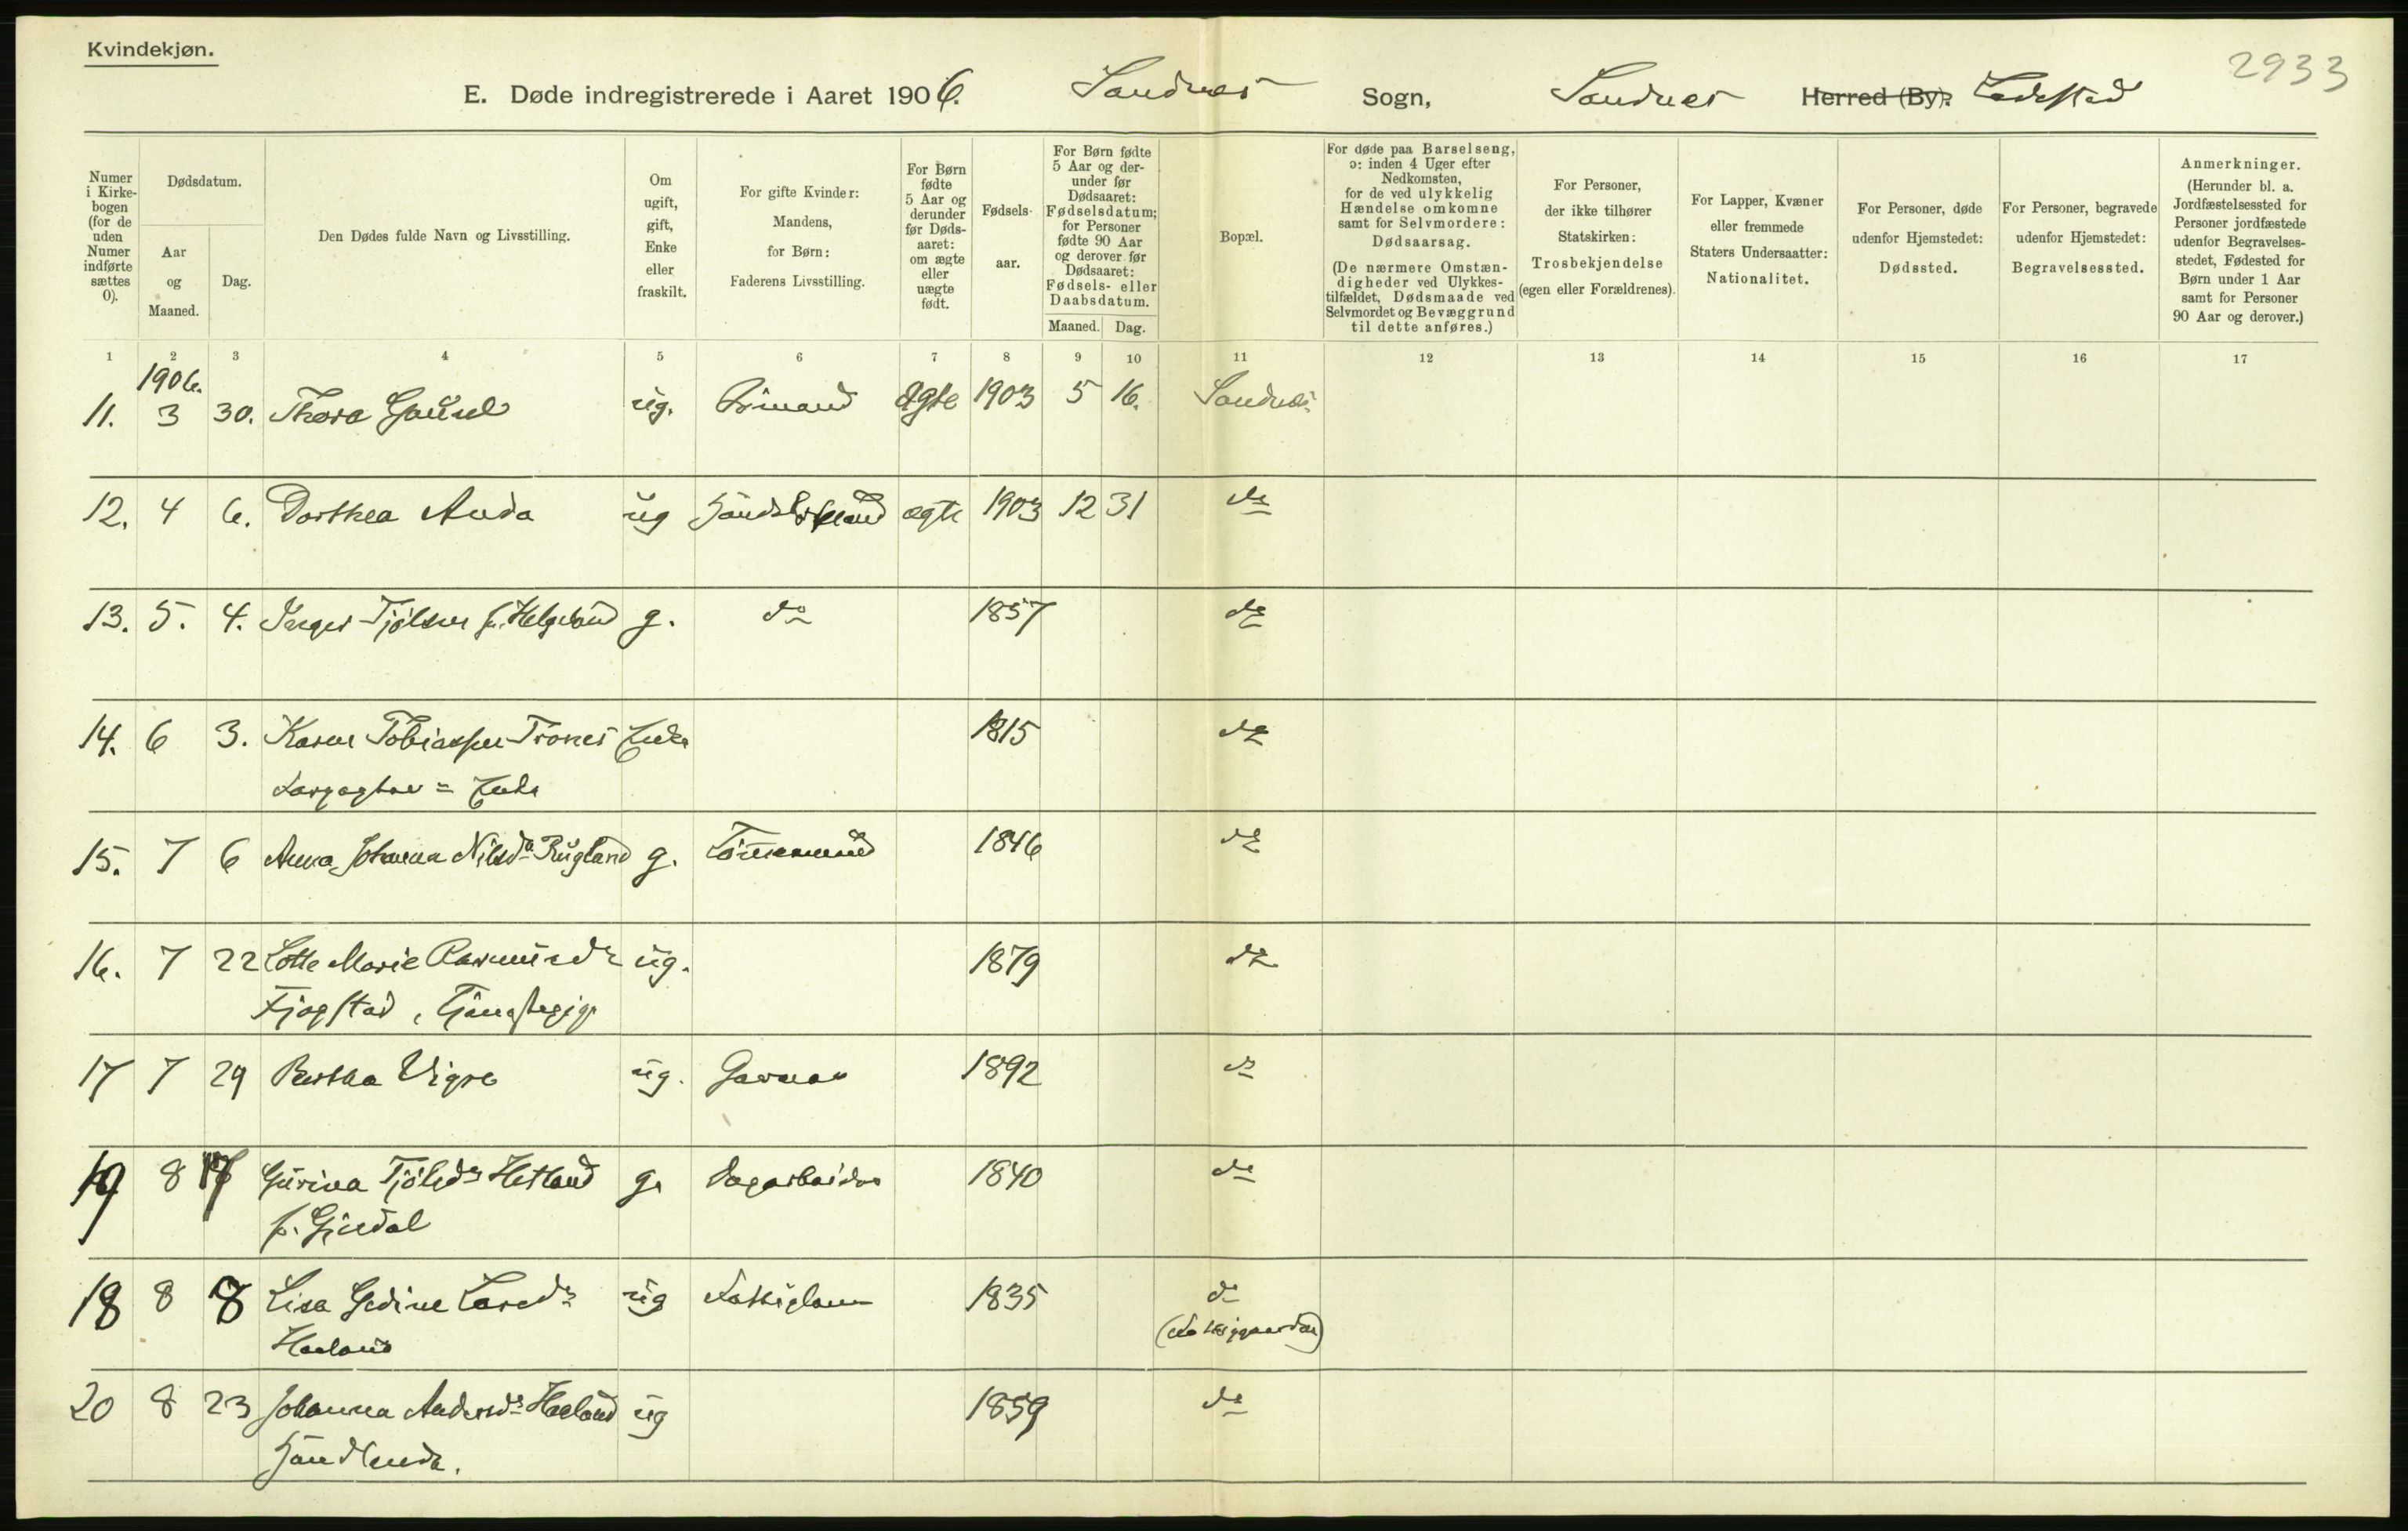 Kvindekjøn.
2933
E. Døde indregistrerede i Aaret 1906. Sandnes Sogn, Sandnes Herred (By). Ladested
Numer i Kirke-bogen (for de uden Numer indførte sættes 0).
Dødsdatum.
Aar og Maaned.
Dag.
Den Dødes fulde Navn og Livsstilling.
Om ugift, gift, Enke eller fraskilt.
For gifte Kvinder: Mandens, for Børn: Faderens Livsstilling.
For Børn fødte 5 Aar og derunder før Døds-aaret: om ægte eller uægte født.
Fødsels-aar.
For Børn fødte 5 Aar og der-under før Dødsaaret: Fødselsdatum; for Personer fødte 90 Aar og derover før Dødsaaret: Fødsels- eller Daabsdatum.
Maaned. Dag.
Bopæl.
For døde paa Barselseng, ɔ: inden 4 Uger efter Nedkomsten, for de ved ulykkelig Hændelse omkomne samt for Selvmordere: Dødsaarsag.
(De nærmere Omstæn-digheder ved Ulykkes-tilfældet, Dødsmaade ved Selvmordet og Bevæggrund til dette anføres.)
For Personer, der ikke tilhører Statskirken: Trosbekjendelse (egen eller Forældrenes).
For Lapper, Kvæner eller fremmede Staters Undersaatter: Nationalitet.
For Personer, døde udenfor Hjemstedet: Dødssted.
For Personer, begravede udenfor Hjemstedet: Begravelsessted.
Anmerkninger. (Herunder bl. a. Jordfæstelsessted for Personer jordfæstede udenfor Begravelses-stedet, Fødested for Børn under 1 Aar samt for Personer 90 Aar og derover.)
1 2 3 4 5 6 7 8 9 10 11 12 13 14 15 16 17
1906.
11. 3 30. Thora Gausel ug. ægte 1903 5 16. Sandnes
12. 4 6. Dorthea Auda ug ægte 1903 12 31 do
13. 5. 4. Tjølsen f. Helgeland g. do 1857 do
14. 6 3. Karen Tobiassen Trones Enke 1815 do
Enke
15. 7 6 Anna Johanna Nilsda Rugland g. Tømmermand 1846 do
16. 7 22 Lotte Marie Rasmusdr ug. 1879 do
Fjogstad, Tjenestepige
17 7 29 Bertha Vigre ug. Garver 1892 do
19 8 17 Gurina Tjølsdr Hetland g. Dagarbeider 1840 do
f. Gjesdal
18 8 8 Lisa Gedine Larsdr ug Fattiglem 1835 do
Haaland
20 8 23 Johanna Andersdr Haaland ug 1859 do
Handlende.